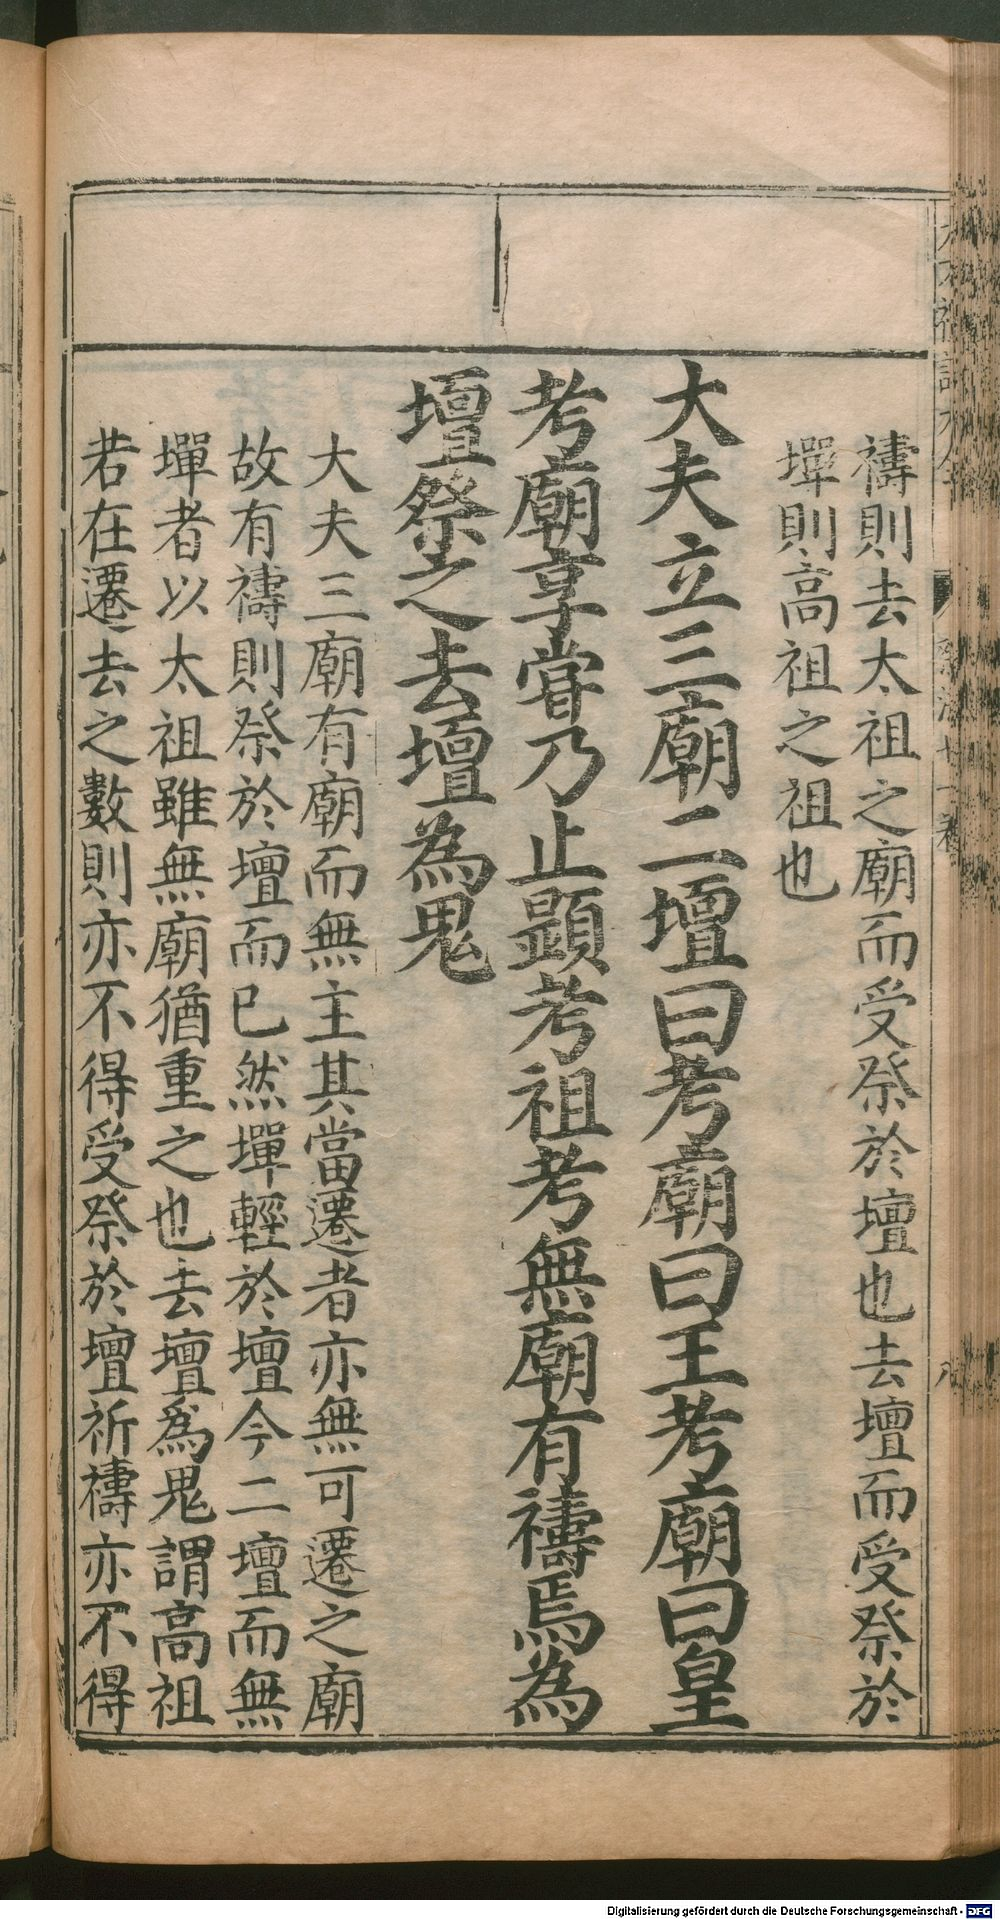 禱則去太祖之廟而受祭於壇也去壇而受祭於
墠則高祖之祖也
大夫立三廟二壇曰考廟曰王考廟曰皇
考廟享嘗乃止顕考祖考無廟有禱焉為
壇祭之去壇為鬼
大夫三廟有廟而無主其當遷者亦無可遷之廟
故有禱則祭於壇而已然墠輕於壇今二壇而無
墠者以太祖雖無廟猶重之也去壇爲鬼謂高祖
若在遷去之數則亦不得受祭於壇祈禱亦不得
Digitalisierung gefördert durch die Deutsche Forschungsgemeinschaft - DFG